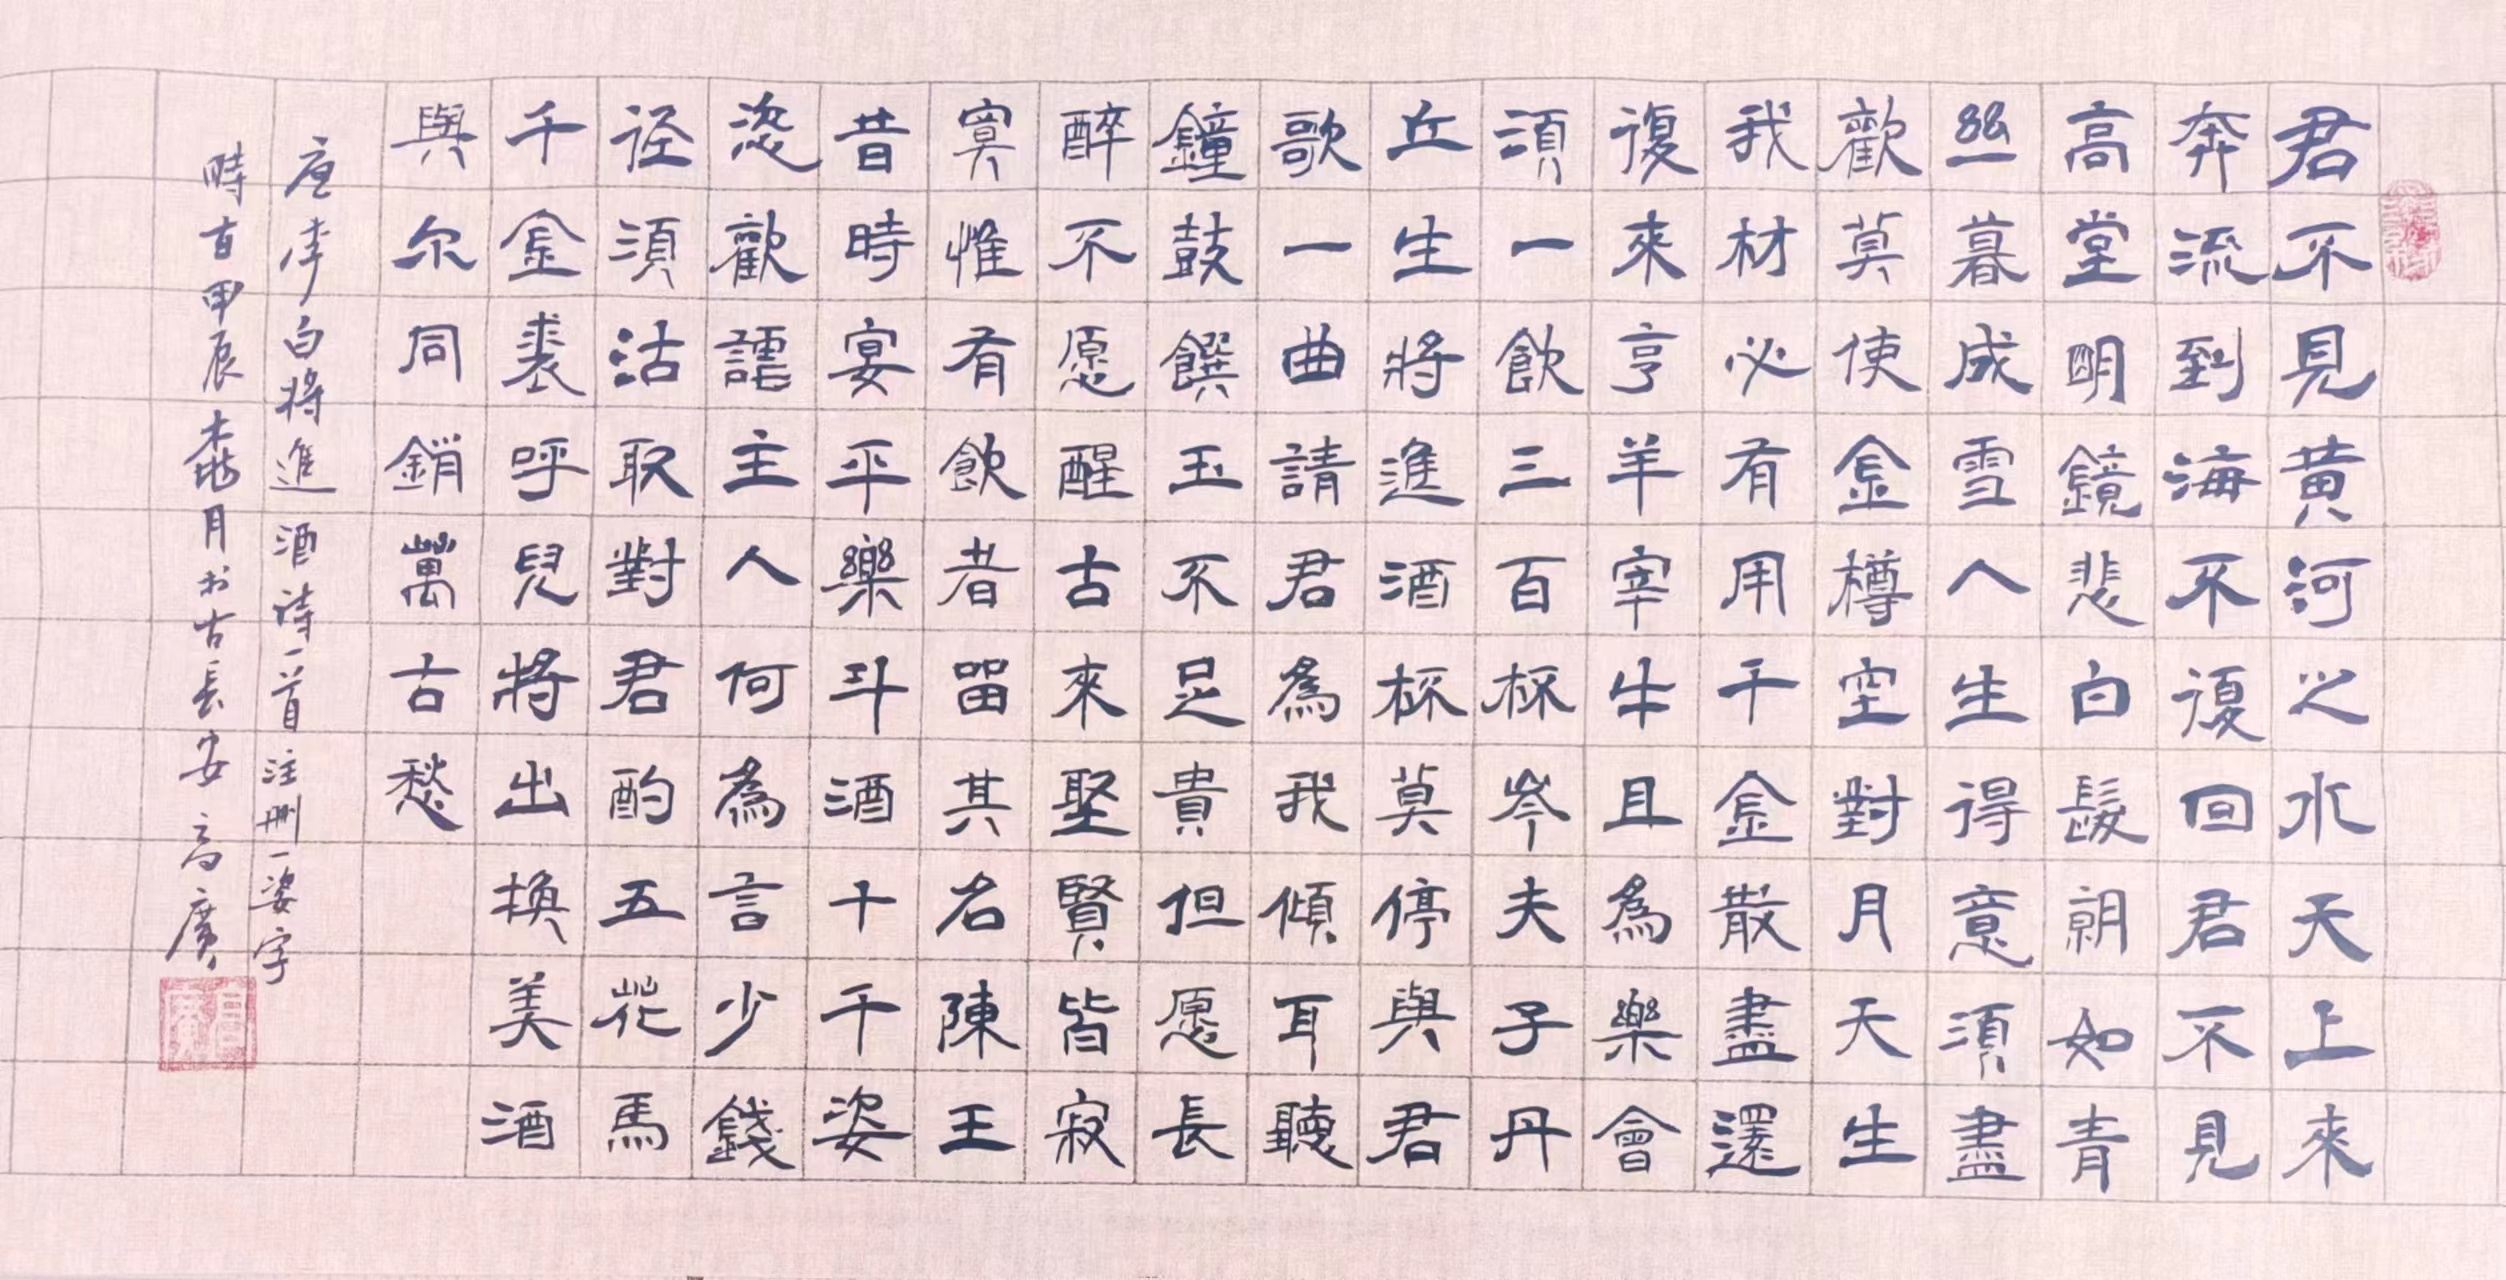 君不見黃河之水天上來
奔流到海不復回君不見
高堂明鏡悲白髮朝如青
絲暮成雪人生得意須盡
歡莫使金樽空對月天生
我材必有用千金散盡還
復來亨羊宰牛且為樂會
須一飲三百杯岑夫子丹
丘生將進酒杯莫停與君
歌一曲請君為我傾耳聽
鐘鼓饌玉不足貴但愿長
醉不愿醒古來聖賢皆寂
寞惟有飲者留其名陳王
昔時宴平樂斗酒十千姿
恣歡謔主人何為言少錢
径須沽取對君酌五花馬
千金裘呼兒將出換美酒
與尔同銷萬古愁
唐李白將進酒诗一首注删一姿字
時在甲辰桃月书古長安高廣
高廣